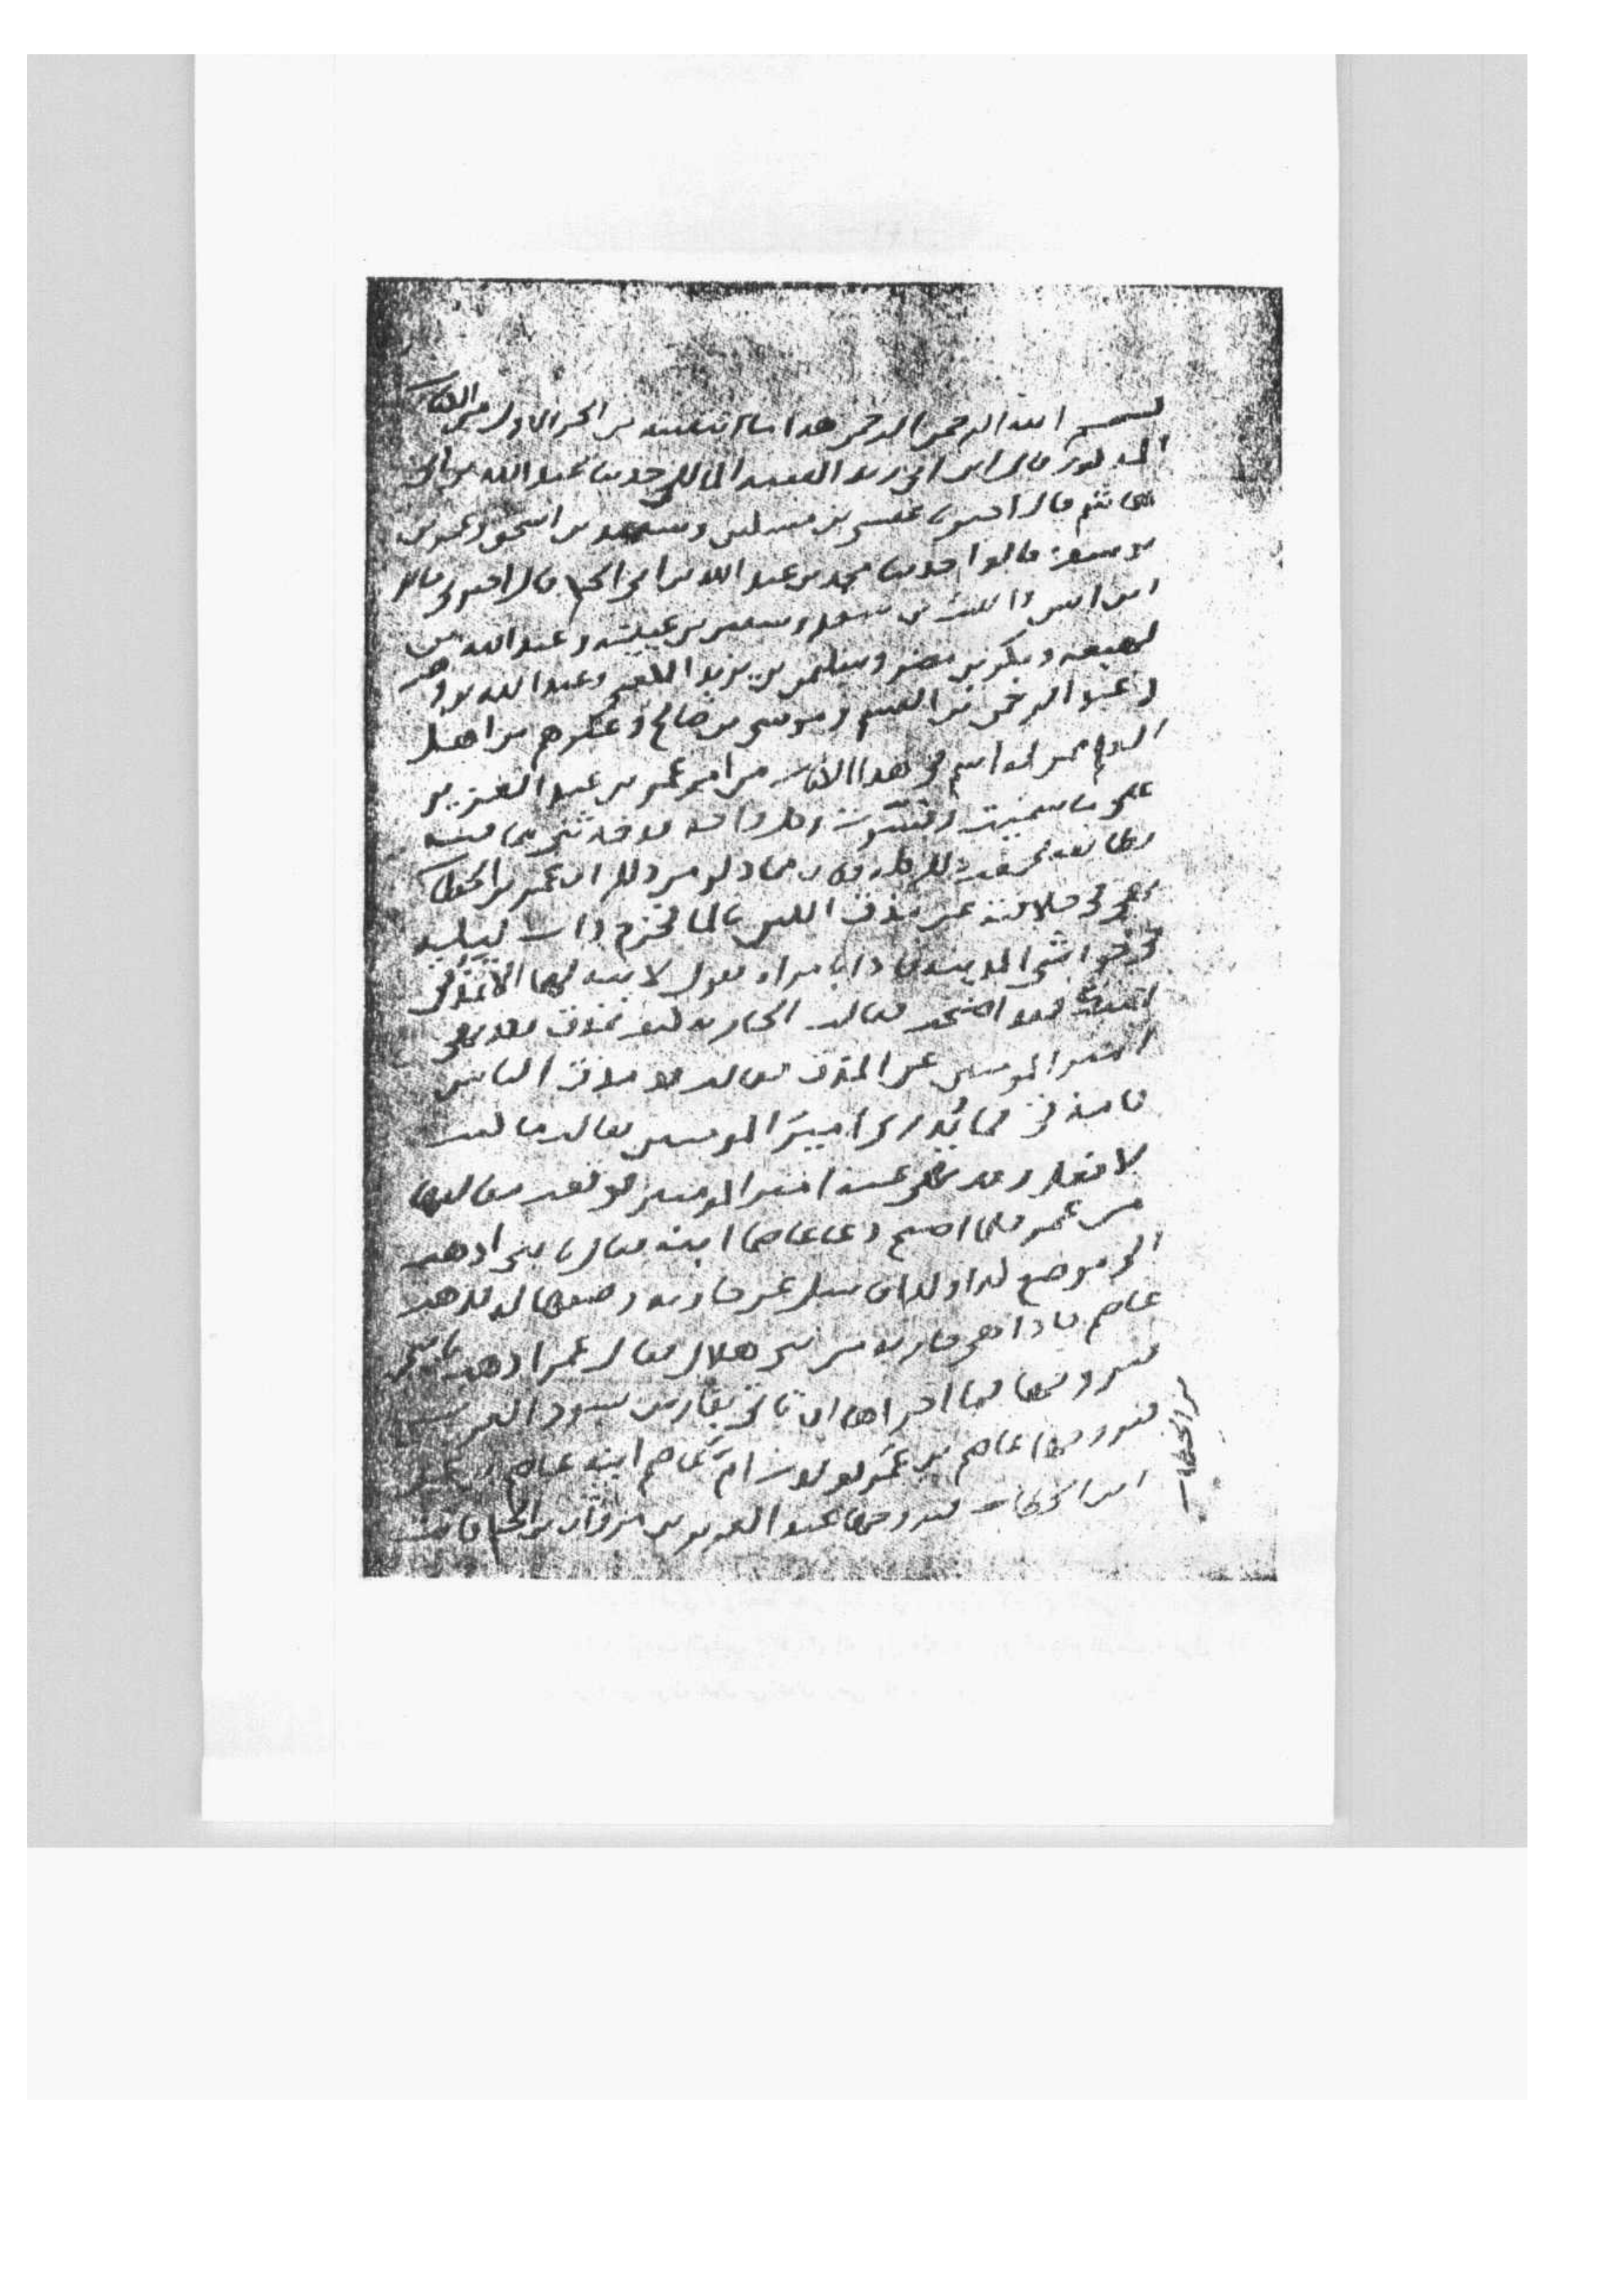 بسم الله الرحمن الرحيم هذا ما انتسخته من الجزء الاول من الكتاب
المذكور قال ابن ابي زيد الفقيه المالكي حدثنا عبد الله بن ابي
هاشم قال اخبرنا عيسى بن مسكين وسعيد بن اسحق وعمر بن
يوسف قالوا حدثنا محمد بن عبد الله بن عبد الحكم قال اخبرني مالك
ابن انس والليث بن سعد وسفين بن عيينة وعبد الله بن
لهيعة وبكر بن مضر وسليمن بن يزيد الكعبي وعبد الله بن وهب
وعبد الرحمن بن القسم وموسى بن صالح وغيرهم من اهل
العلم ممن لم اسم في هذا الكتاب من امر عمر بن عبد العزيز
على ما سميت وفسرت وكل واحد منهم قد اخبرني
بطائفة فجمعت ذلك كله وكان مما ذكر من ذلك ان عمر بن الخطاب
نهى في خلافته عن مذق اللبن بالماء فخرج ذات ليلة
في حواشي المدينة فاذا بامراة تقول لابنة لها الا تمذقين
لبنك فقد اصبحت فقالت الجارية كيف امذق وقد نهى
امير المومنين عن المذق فقالت قد مذق الناس
فامذقي فما يدري امير المومنين فقالت ما كنت
لافعله وقد نهى عنه امير المومنين فوقعت مقالتها
من عمر فلما اصبح دعا عاصما ابنه فقال يا بني اذهب
الى موضع كذا وكذا فاسئل عن جارية ووصفها له فذهب
عاصم فاذا هي جارية من بني هلال فقال عمر اذهب يا بني
فتزوجها فما احراها ان تاتي بفارس يسود العرب
فتزوجها عاصم بن عمر فولدت ام عاصم ابنة عاصم بن عمر
ابن الخطاب فتزوجها عبد العزيز بن مروان بن الحكم فاتت
بن الخطاب